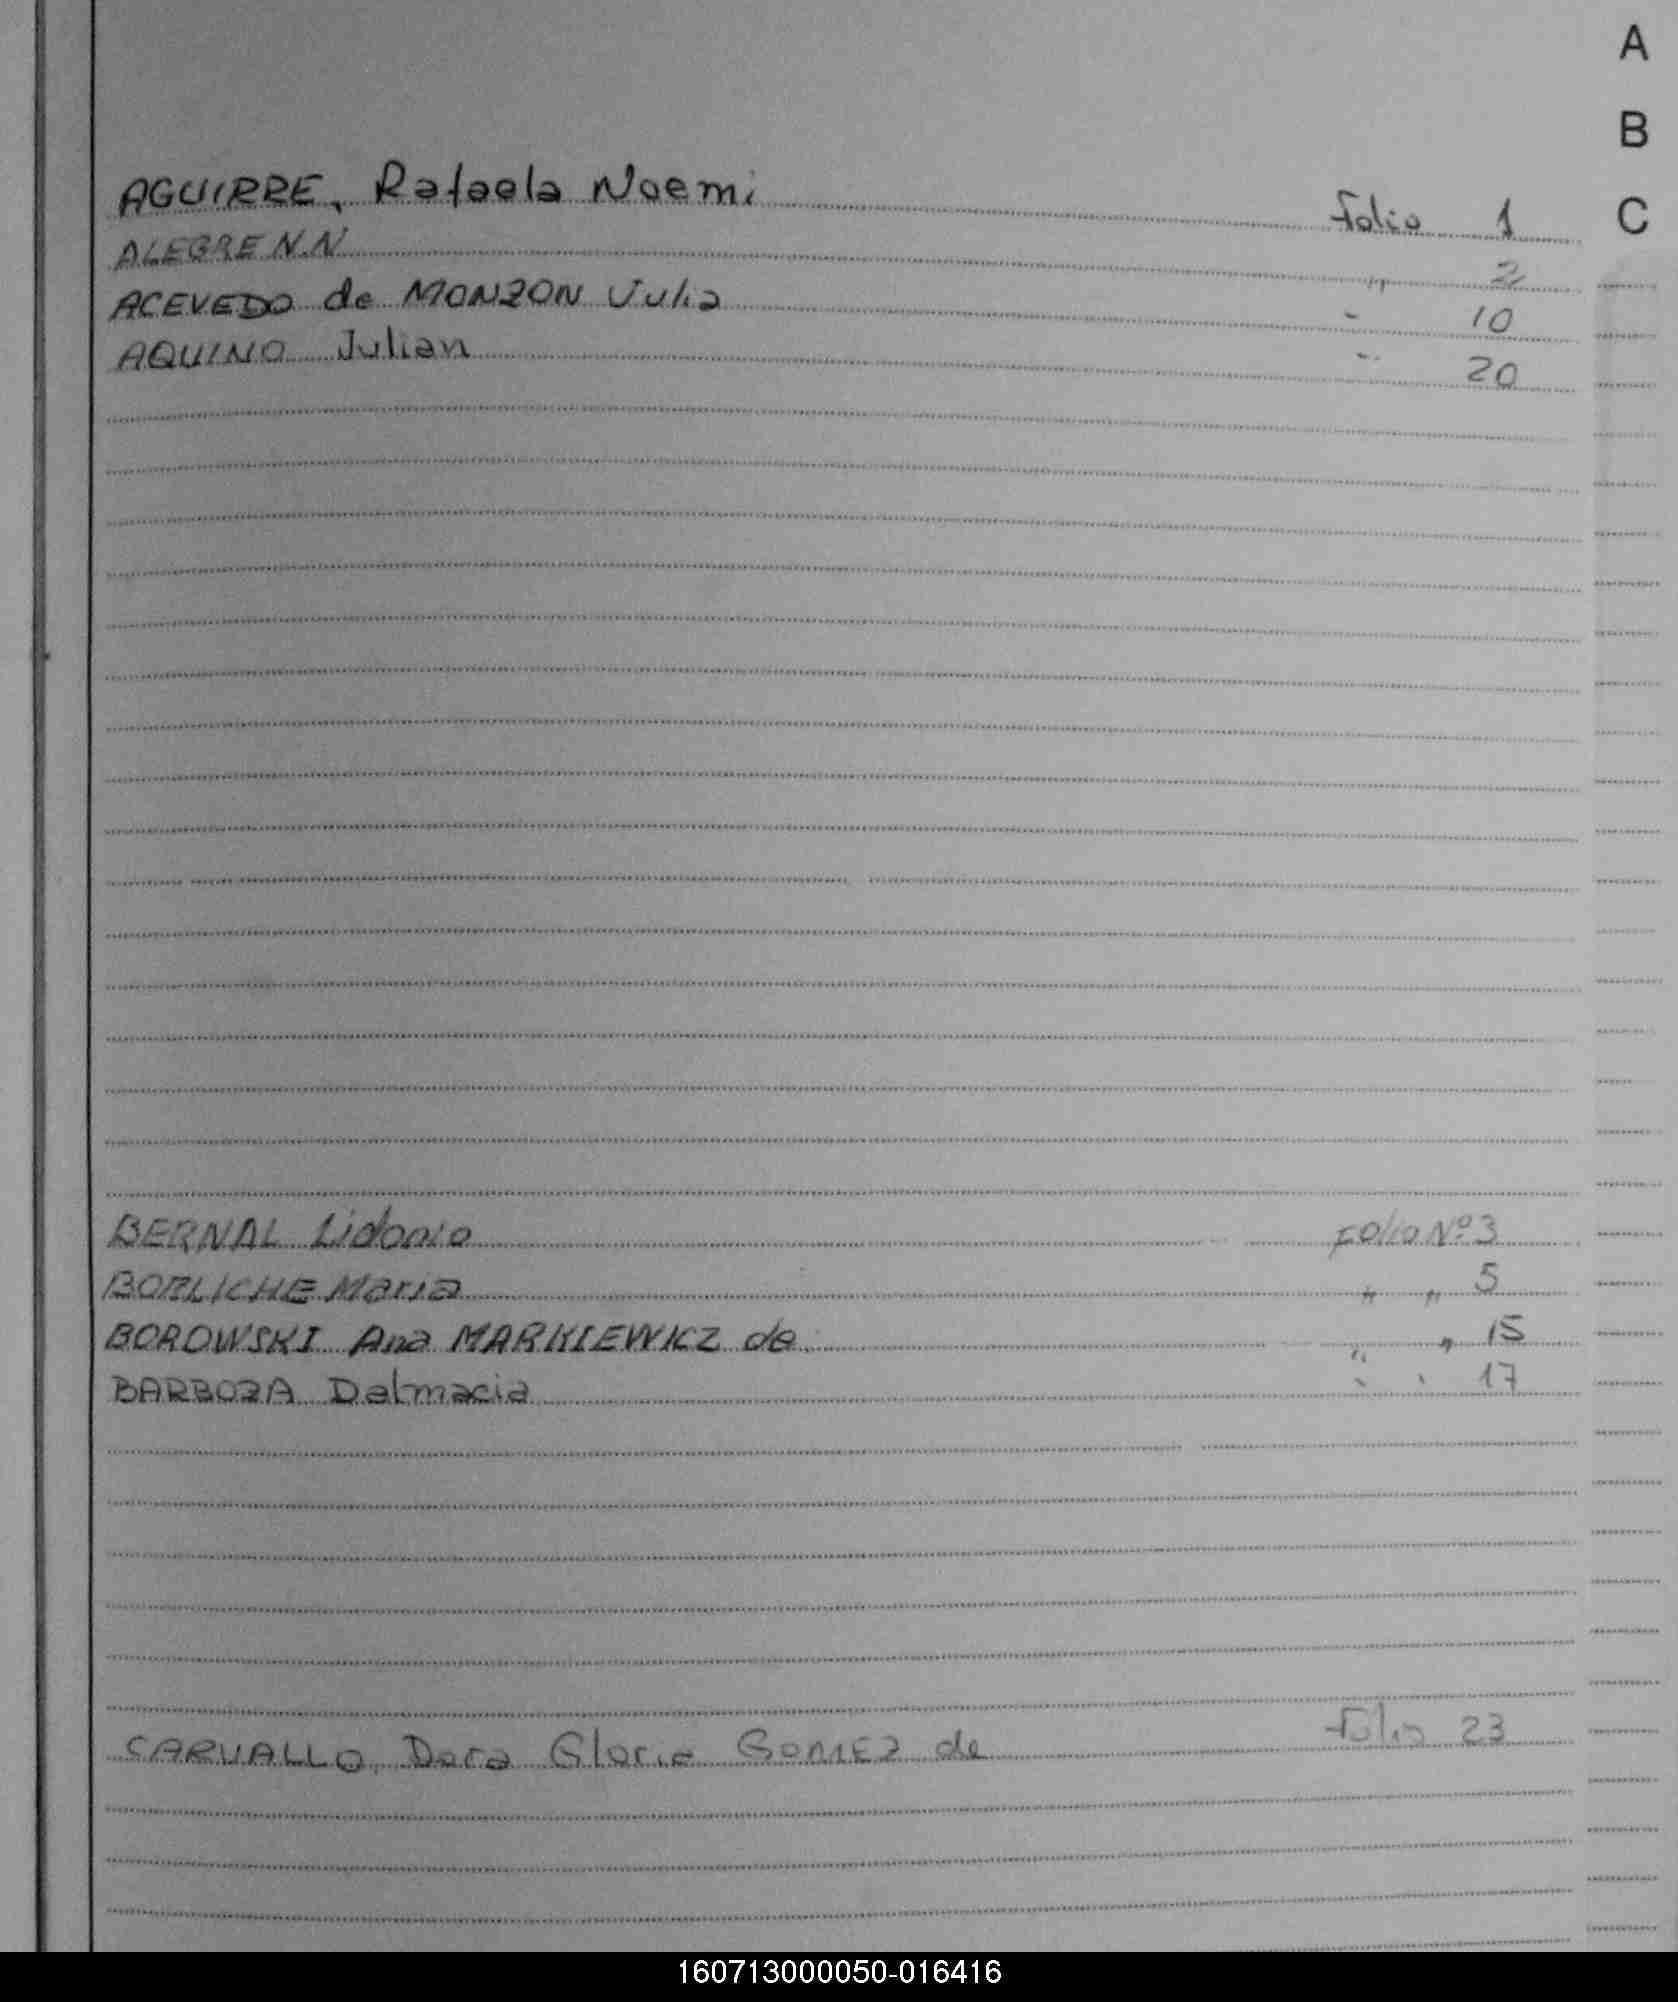 A
B
C
AGUIRRE, Rafaela Noemi Folio 1
ALEGRE N.N. " 2
ACEVEDO de MONZON Julia " 10
AQUINO Julian " 20
BERNAL Lidonio Folio Nº 3
BORLICHE Maria " " 5
BOROWSKI Ana MARKIEWICZ de " " 15
BARBOZA Dalmacia " " 17
CARVALLO, Dora Gloria GOMEZ de Folio 23
160713000050-016416